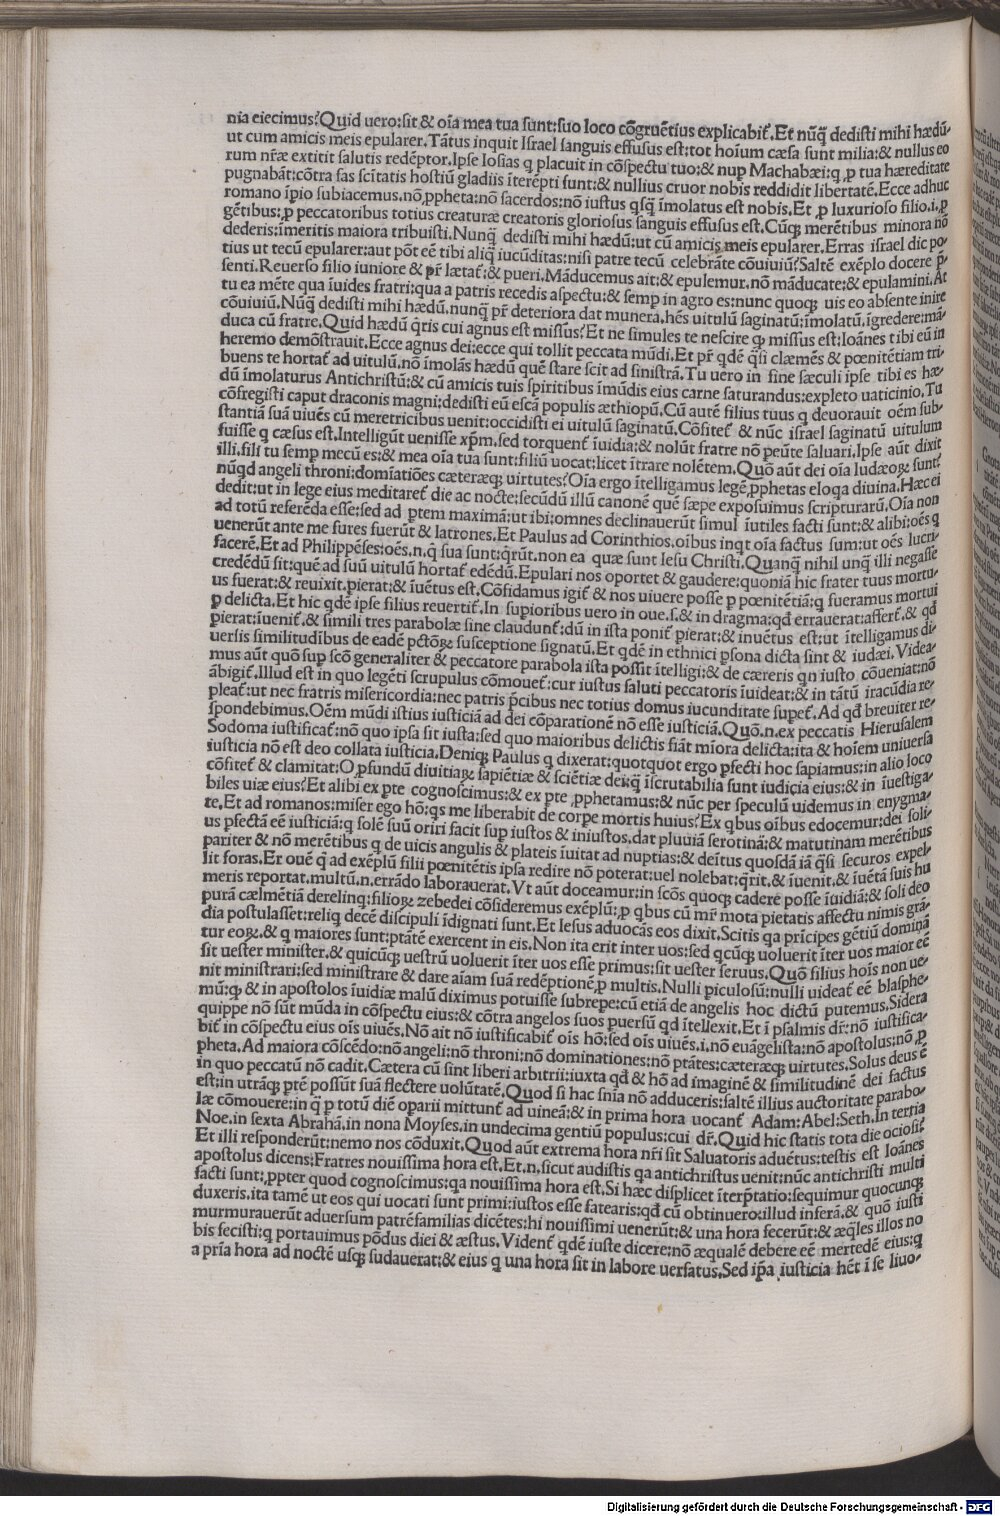 nia eiecimus?Quid uero:sit & oĩa mea tua sunt:suo loco cõgruẽtius explicabiť.Et nũq̃ dedisti mihi hædũ-
ut cum amicis meis epularer.Tãtus inquit Israel sanguis effusus est:tot hoĩum cæsa sunt milia:& nullus eo
rum nr̃æ extitit salutis redẽptor.Ipse Iosias q placuit in cõspectu tuo:& nup Machabæi:q ꝓ tua hæreditate
pugnabãt:cõtra fas scĩtatis hostiũ gladiis ĩterẽpti sunt:& nullius cruor nobis reddidit libertatẽ.Ecce adhuc
romano ĩpio subiacemus.nõ ꝓpheta:nõ sacerdos:nõ iustus qsq̃ ĩmolatus est nobis.Et ꝓ luxurioso filio.i.ꝓ
gẽtibus:ꝓ peccatoribus totius creaturæ creatoris gloriosus sanguis effusus est.Cũqꝫ merẽtibus minora nõ
dederis:ĩmeritis maiora tribuisti.Nunq̃ dedisti mihi hædũ:ut cũ amicis meis epularer.Erras israel dic po-
tius ut tecũ epularer:aut põt eẽ tibi aliq̃ iucũditas:nisi patre tecũ celebrãte cõuiuiũ?Saltẽ exẽplo docere p̃-
senti.Reuerso filio iuniore & pr̃ lætať:& pueri.Mãducemus ait:& epulemur.nõ mãducate:& epulamini.At
tu ea mẽte qua ĩuides fratri:qua a patris recedis aspectu:& semp in agro es:nunc quoqꝫ uis eo absente inire
cõuiuiũ.Nũq̃ dedisti mihi hædũ.nunq̃ pr̃ deteriora dat munera.hẽs uitulũ saginatũ:ĩmolatũ.ĩgredere:mã-
duca cũ fratre.Quid hædũ q̃ris cui agnus est missus?Et ne simules te nescire ꝙ missus est:Ioãnes tibi eũ in
heremo demõstrauit.Ecce agnus dei:ecce qui tollit peccata mũdi.Et pr̃ qdẽ q̃si clæmẽs & pœnitẽtiam tri-
buens te hortať ad uitulũ.nõ ĩmolãs hædũ quẽ stare scit ad sinistrã.Tu uero in fine sæculi ipse tibi es hæ-
dũ ĩmolaturus Antichristũ:& cũ amicis tuis spiritibus ĩmũdis eius carne saturandus:expleto uaticinio.Tu
cõfregisti caput draconis magni:dedisti eũ escã populis æthiopũ.Cũ autẽ filius tuus q deuorauit oẽm sub-
stantiã suã uiuẽs cũ meretricibus uenit:occidisti ei uitulũ saginatũ.Cõsiteť & nũc israel saginatũ uitulum
fuisse q cæsus est.Intelligũt uenisse xp̃m.sed torquenť ĩuidia:& nolũt fratre nõ peũte saluari.Ipse aũt dixit
illi.fili tu semp mecũ es:& mea oĩa tua sunt:filiũ uocat:licet ĩtrare nolẽtem.Quõ aũt dei oĩa Iudæoꝝ sunt?
nũqd angeli throni:domĩatiões cæteræqꝫ uirtutes?Oĩa ergo ĩtelligamus legẽ.ꝓphetas eloqa diuina.Hæc ei
dedit:ut in lege eius meditareť die ac nocte:secũdũ illũ canonẽ quẽ sæpe exposuimus scripturarũ.Oĩa non
ad totũ referẽda esse:sed ad ptem maximã:ut ibi:omnes declinauerũt simul ĩutiles facti sunt:& alibi:oẽs q
uenerũt ante me fures fuerũt & latrones.Et Paulus ad Corinthios.oĩbus inqt oĩa factus sum:ut oẽs lucri-
facerẽ.Et ad Philippẽses:oẽs.n.q̃ sua sunt:q̃rũt.non ea quæ sunt Iesu Christi.Quanq̃ nihil unq̃ illi negasse
credẽdũ sit:quẽ ad suũ uitulũ hortať edẽdũ.Epulari nos oportet & gaudere:quoniã hic frater tuus mortu-
us fuerat:& reuixit.pierat:& ĩuẽtus est.Cõfidamus igiť & nos uiuere posse ꝓ pœnitẽtiã:q fueramus mortui
ꝓ delicta.Et hic qdẽ ipse filius reuertiť.In supioribus uero in oue.s.& in dragma:qđ errauerat:afferť.& qđ
pierat:ĩueniť.& simili tres parabolæ fine claudunť:dũ in ista poniť pierat:& inuẽtus est:ut ĩtelligamus di-
uersis similitudĩbus de eadẽ pctõꝝ susceptione signatũ.Et qdẽ in ethnici psona dicta sint & iudæi.Videa-
mus aũt quõ sup scõ generaliter & peccatore parabola ista possit ĩtelligi:& de cæreris qn iusto cõueniat:nõ
ãbigiť.Illud est in quo legẽti scrupulus cõmoueť:cur iustus saluti peccatoris ĩuideat:& in tãtũ iracũdia re-
pleať:ut nec fratris misericordia:nec patris p̃cibus nec totius domus iucunditate supeť.Ad qđ breuiter re-
spondebimus.Oẽm mũdi istius iusticiã ad dei cõparationẽ nõ esse iusticiã.Quõ.n.ex peccatis Hierusalem
Sodoma iustificať:nõ quo ipsa sit iusta:sed quo maioribus delictis fiãt mĩora delicta:ita & hoĩem uniuersa
iusticia nõ est deo collata iusticia.Deniqꝫ Paulus q dixerat:quotquot ergo ꝓfecti hoc sapiamus:in alio loco
cõfiteť & clamitat:O ꝓfundũ diuitiaꝝ sapiẽtiæ & sciẽtiæ dei:q̃ ĩscrutabilia sunt iudicia eius:& in ĩuestiga-
biles uiæ eius?Et alibi ex pte cognoscimus:& ex pte ꝓphetamus:& nũc per speculũ uidemus in enygma-
te.Et ad romanos:miser ego hõ:qs me liberabit de corpe mortis huius?Ex qbus oĩbus edocemur:dei soli-
us pfectã eẽ iusticiã:q solẽ suũ oriri facit sup iustos & iniustos.dat pluuiã serotinã:& matutinam merẽtibus
pariter & nõ merẽtibus q de uicis angulis & plateis ĩuitat ad nuptias:& deĩtus quosdã iã q̃si securos expel-
lit foras.Et ouẽ q̃ ad exẽplũ filii pœnitẽtis ipsa redire nõ poterat:uel nolebat:q̃rit.& ĩuenit.& ĩuẽtã suis hu
meris reportat.multũ.n.errãdo laborauerat.Vt aũt doceamur:in scõs quoqꝫ cadere posse ĩuidiã:& soli deo
purã cælmẽtiã derelinq:filioꝝ zebedei cõsideremus exẽplũ:ꝓ qbus cũ mr̃ mota pietatis affectu nimis grã-
dia postulasset:reliq decẽ discipuli ĩdignati sunt.Et Iesus aduocãs eos dixit.Scitis qa prĩcipes gẽtiũ dominã
tur eoꝝ.& q maiores sunt:ptãtẽ exercent in eis.Non ita erit inter uos:sed qcũqꝫ uoluerit ĩter uos maior eẽ
sit uester minister.& quicũqꝫ uestrũ uoluerit ĩter uos esse primus:sit uester seruus.Quõ filius hoĩs non ue-
nit ministrari:sed ministrare & dare aĩam suã redẽptionẽ.ꝓ multis.Nulli piculosũ:nulli uideať eẽ blasphe-
mũ:ꝙ & in apostolos ĩuidiæ malũ diximus potuisse subrepe:cũ etiã de angelis hoc dictũ putemus.Sidera
quippe nõ sũt mũda in cõspectu eius:& cõtra angelos suos puersũ qd ĩtellexit.Et ĩ psalmis dr̃:nõ iustifica-
biť in cõspectu eius oĩs uiuẽs.Nõ ait nõ iustificabiť oĩs hõ:sed oĩs uiuẽs.i.nõ euãgelista:nõ apostolus:nõ ꝓ
pheta.Ad maiora cõscẽdo:nõ angeli:nõ throni:nõ dominationes:nõ ptãtes:cæteræqꝫ uirtutes.Solus deus ẽ
in quo peccatũ nõ cadit.Cætera cũ sint liberi arbitrii:iuxta qđ & hõ ad imaginẽ & similitudinẽ dei factus
est:in utrãqꝫ ptẽ possũt suã flectere uolũtatẽ.Quod si hac snĩa nõ adduceris:saltẽ illius auctoritate parabo-
læ cõmouere:in q̃ p totũ diẽ oparii mittunť ad uineã:& in prima hora uocanť Adam:Abel:Seth.In tertia
Noe.in sexta Abrahã.in nona Moyses.in undecima gentiũ populus:cui dr̃.Quid hic statis tota die ociosi?
Et illi responderũt:nemo nos cõduxit.Quod aũt extrema hora nr̃i sit Saluatoris aduẽtus:testis est Ioãnes
apostolus dicens:Fratres nouissima hora est.Et.n.sicut audistis qa antichristus uenit:nũc antichristi multi
facti sunt:ꝓpter quod cognoscimus:qa nouissima hora est.Si hæc displicet ĩterp̃tatio:sequimur quocunqꝫ
duxeris.ita tamẽ ut eos qui uocati sunt primi:iustos esse fatearis:qđ cũ obtinuero:illud inferã.& quõ iusti
murmurauerũt aduersum patrẽfamilias dicẽtes:hi nouissimi uenerũt:& una hora fecerũt:& æq̃les illos no
bis fecisti:q portauimus põdus diei & æstus.Videnť qdẽ iuste dicere:nõ æqualẽ debere eẽ mertedẽ eius:q
a prĩa hora ad noctẽ usqꝫ sudauerat:& eius q una hora sit in labore uersatus.Sed ip̃a iusticia hẽt ĩ se liuo-
Digitalisierung gefördert durch die Deutsche Forschungsgemeinschaft - DFG